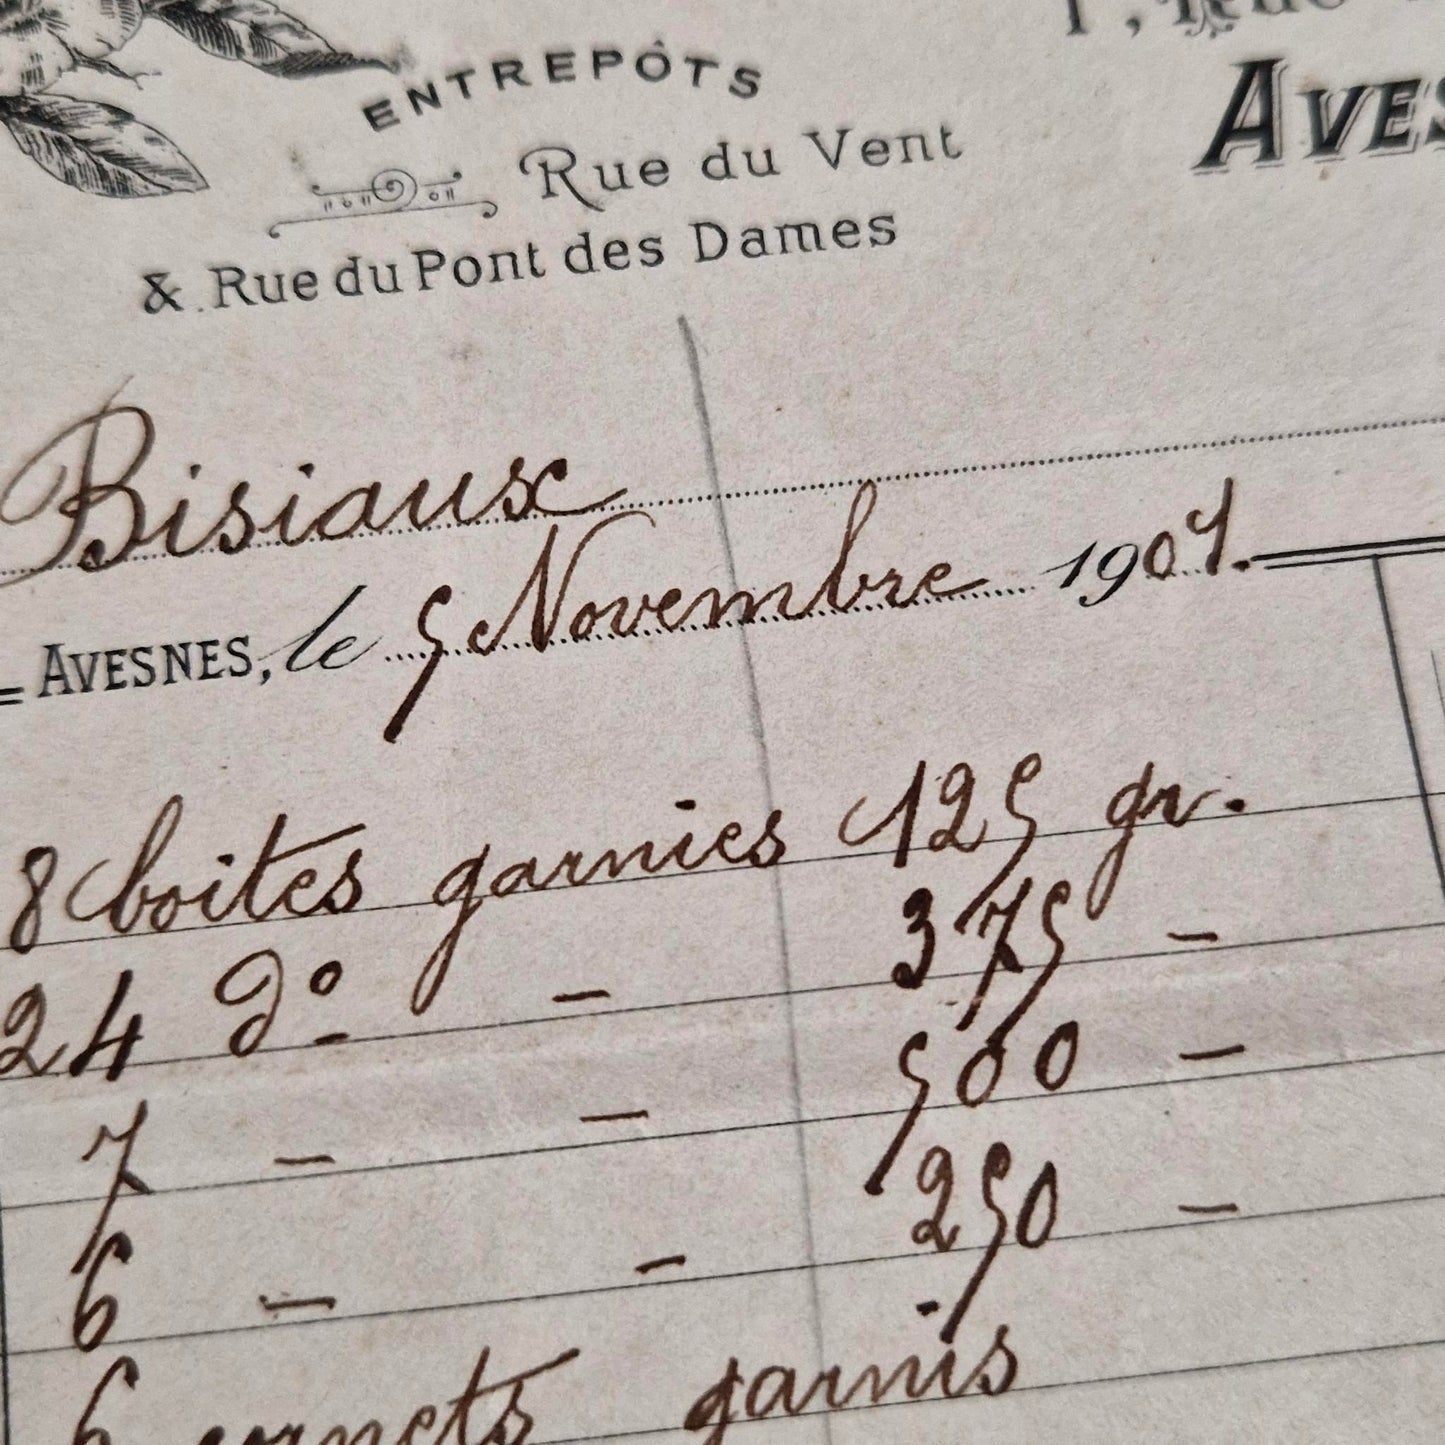 ENTREPÔTS
1, Rue
AVES
Rue du Vent
& Rue du Pont des Dames
Bisiaux
AVESNES, le 5 Novembre 1904.
8 boîtes garnies 125 gr.
24 d° - 375 -
7 - - 500 -
6 - - 250 -
6 cornets garnis